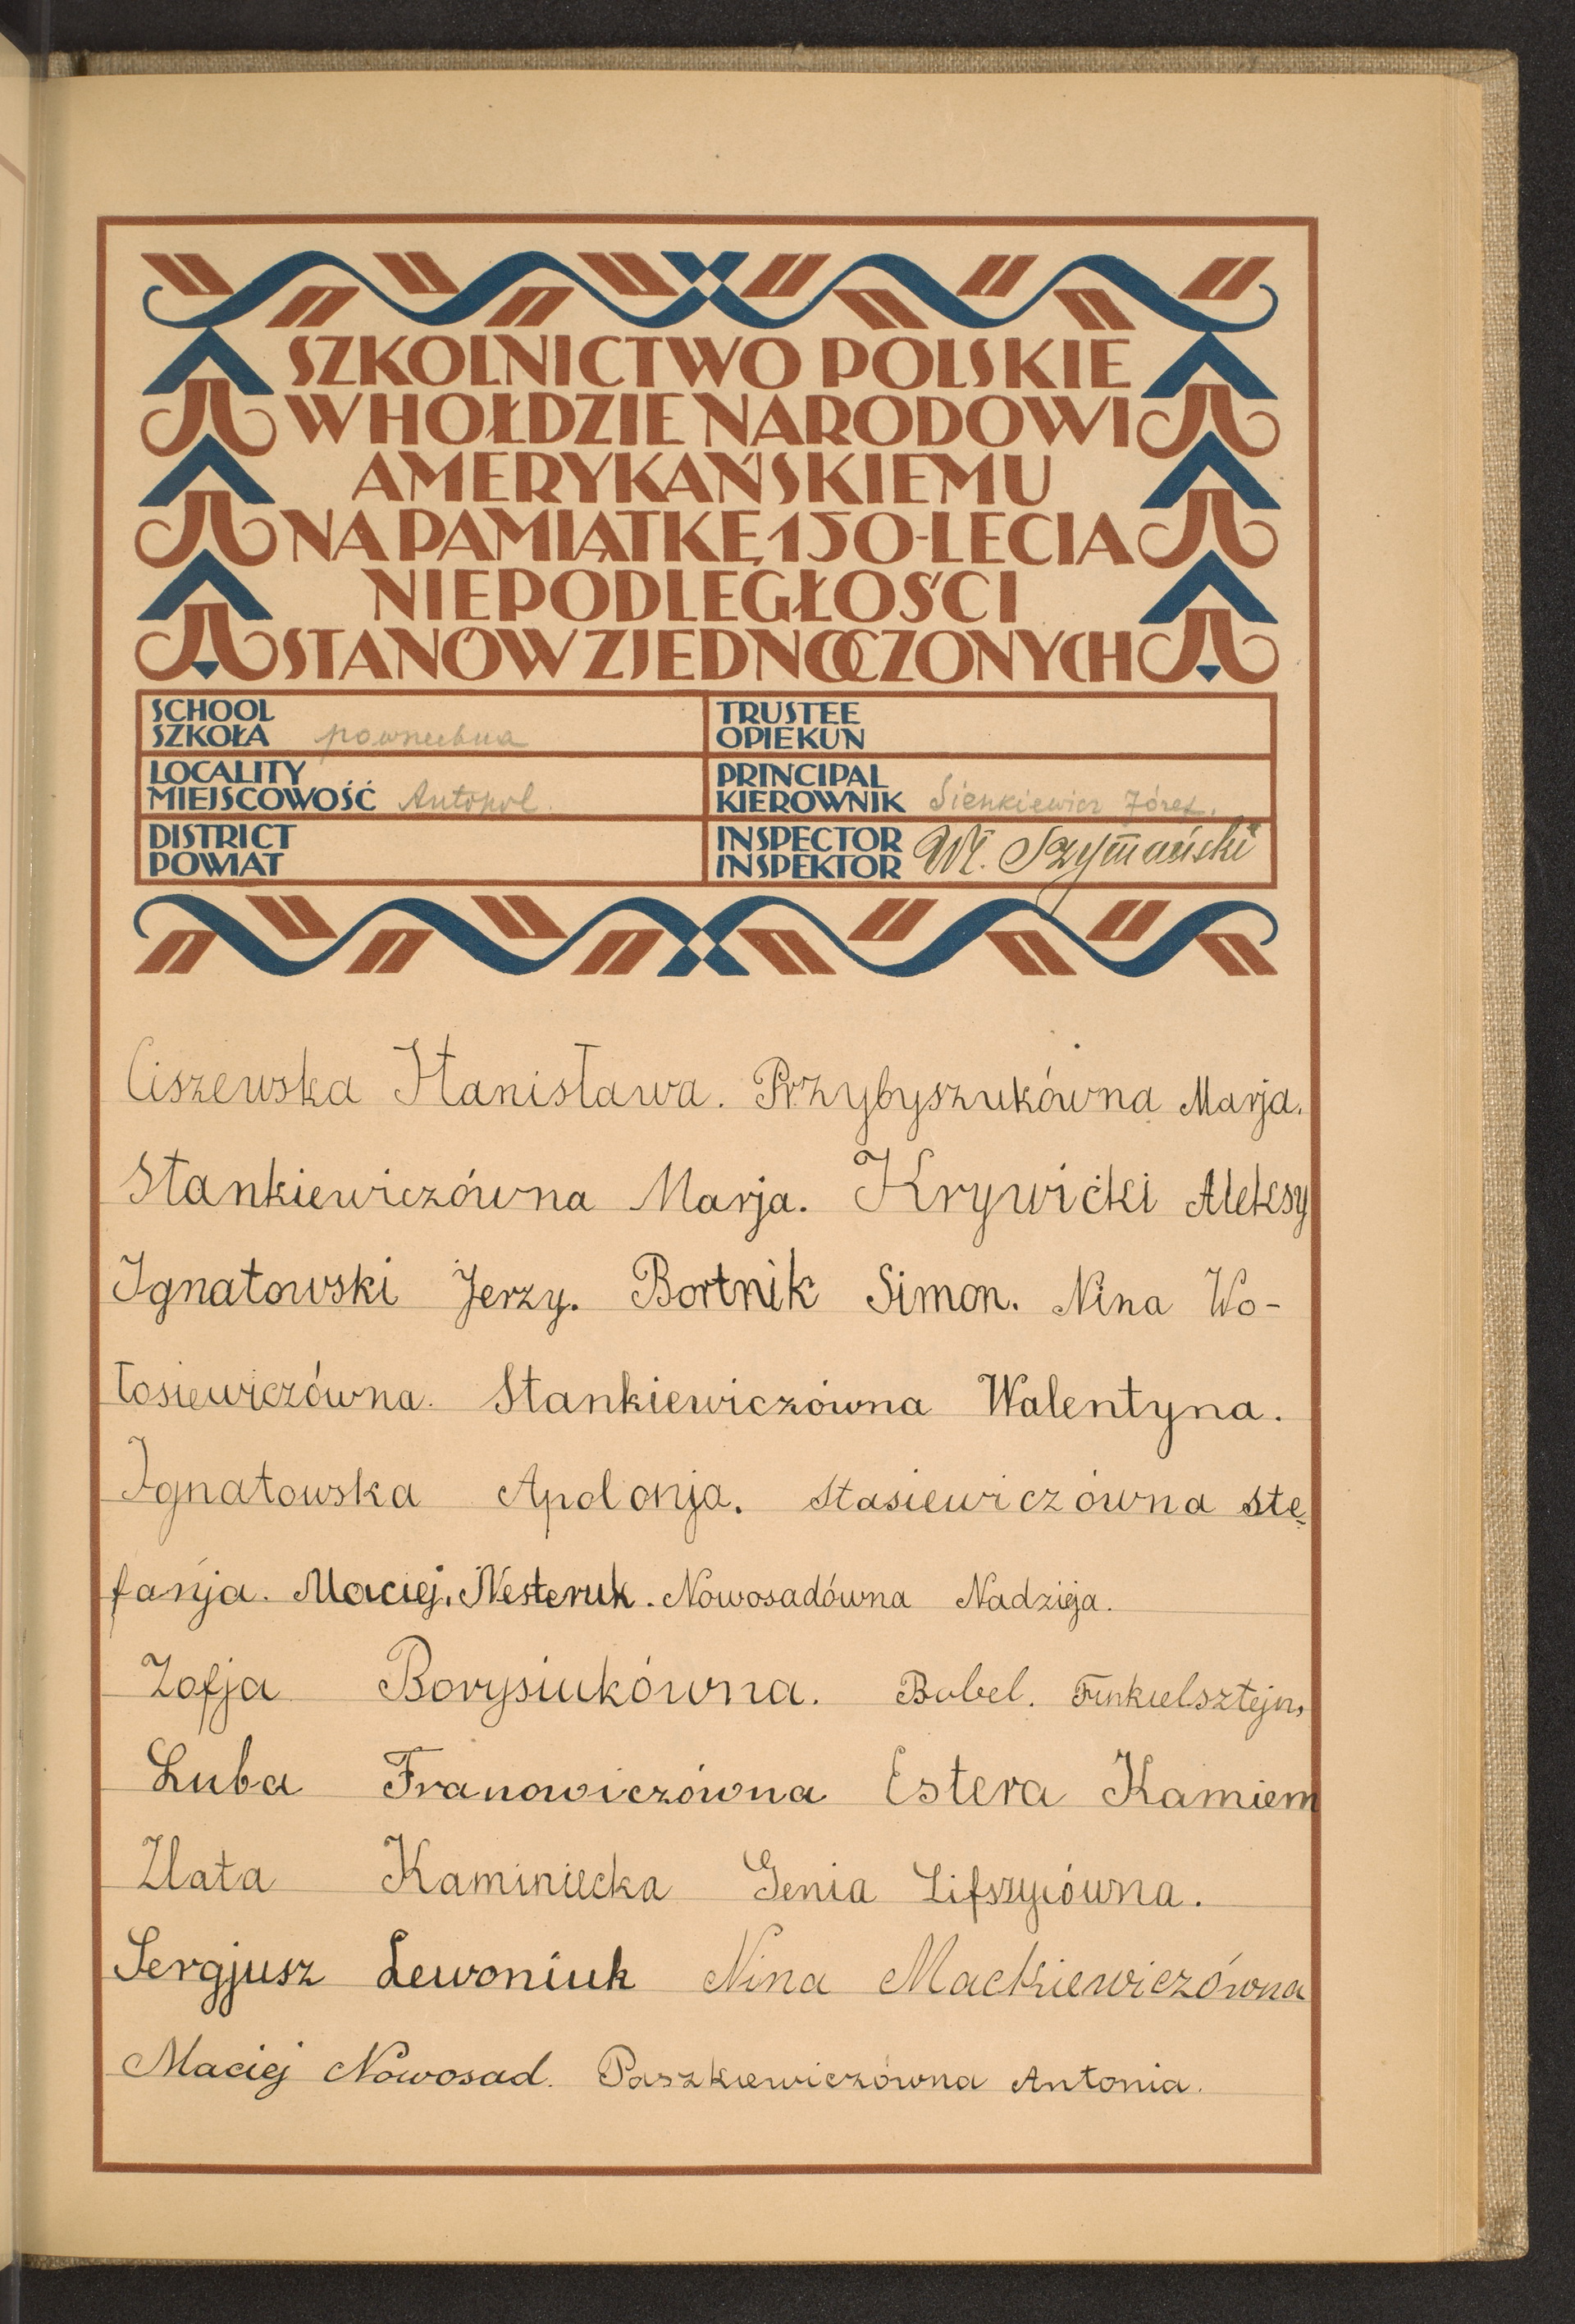 SZKOLNICTWO POLSKIE
W HOŁDZIE NARODOWI
AMERYKAŃSKIEMU
NA PAMIĄTKĘ 150-LECIA
NIEPODLEGŁOŚCI
STANÓW ZJEDNOCZONYCH
SCHOOL
SZKOŁA powszechna
TRUSTEE
OPIEKUN
LOCALITY
MIEJSCOWOŚĆ Antopol.
PRINCIPAL
KIEROWNIK Sienkiewicz Józef.
DISTRICT
POWIAT
INSPECTOR
INSPEKTOR Wł. Szymański
Ciszewska Stanisława. Przybyszukówna Marja.
Stankiewiczówna Marja. Krywicki Aleksy
Ignatowski Jerzy. Bortnik Simon. Nina Wo-
łosiewiczówna. Stankiewiczówna Walentyna.
Ignatowska Apolonja. Stasiewiczówna Ste
fanja. Maciej. Nesteruk. Nowosadówna Nadzieja.
Zofja Borysiukówna. Bobel. Finkielsztejn,
Luba Franowiczówna Estera Kamiem
Zlata Kaminiecka Genia Lifszycówna.
Sergjusz Lewoniuk Nina Mackiewiczówna
Maciej Nowosad. Paszkiewiczówna Antonia.